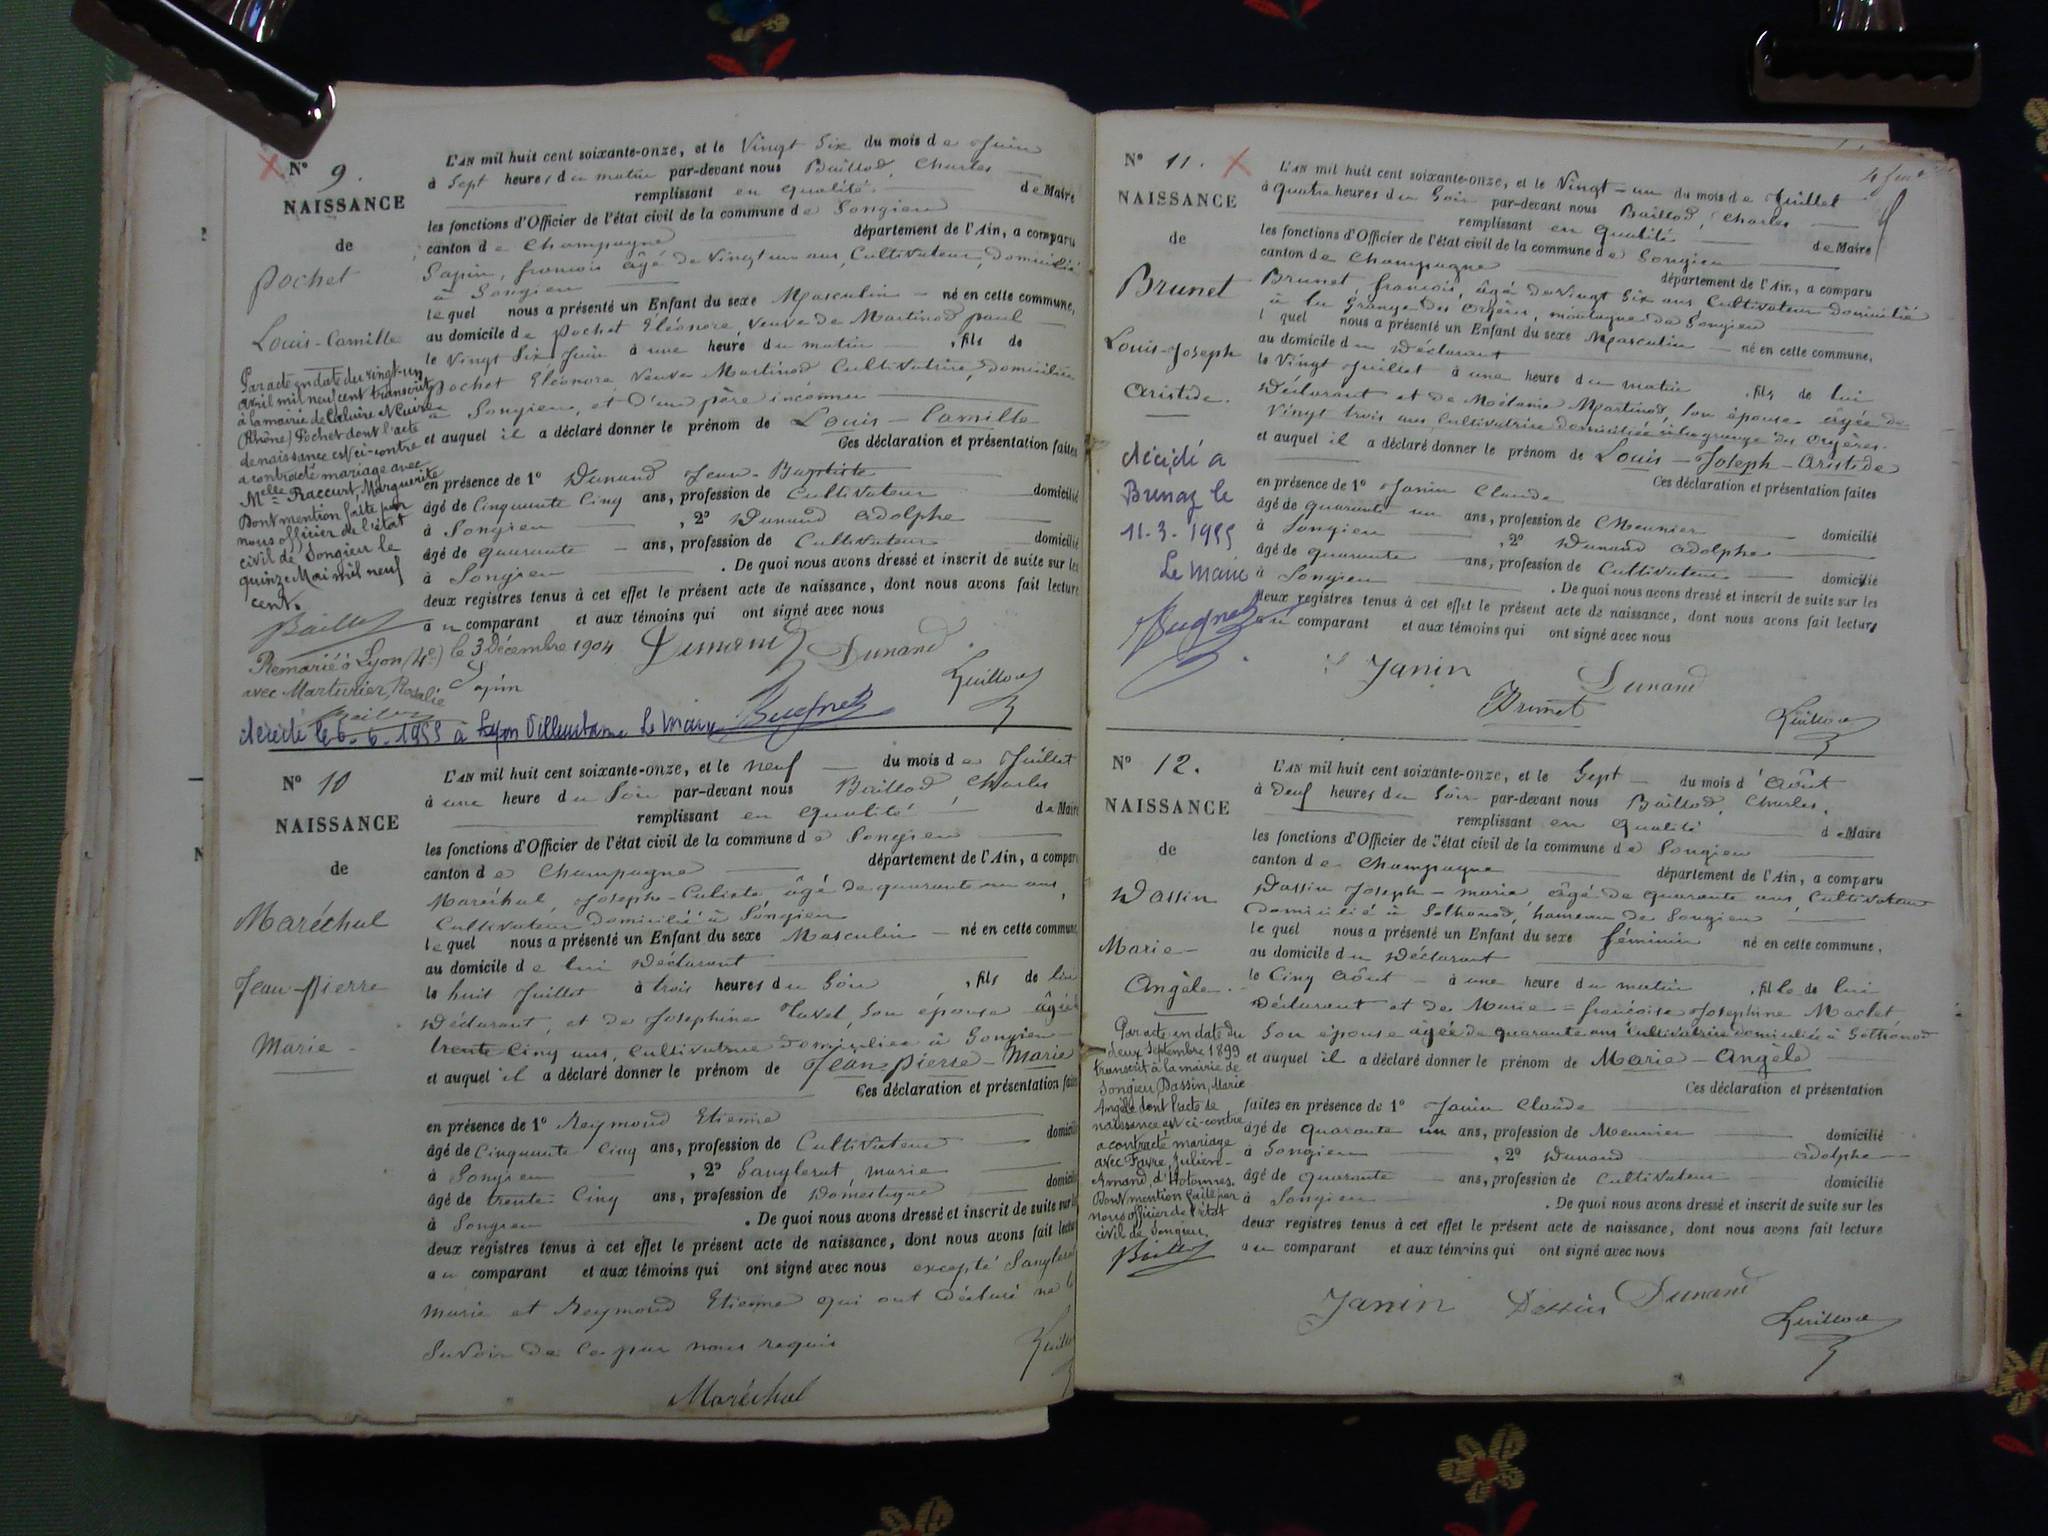 N° 9.
NAISSANCE
de
Pochet
Louis-Camille
Par acte en date du vingt-un
avril mil neuf cent transcrit
à la mairie de Caluire et Cuire
(Rhône) Pochet dont l'acte
de naissance est ci-contre
a contracté mariage avec
Melle Raccurt, Marguerite
Dont mention faite par
nous officier de l'état
civil de Songieu le
quinze Mai mil neuf
cent.
Remarié à Lyon (4e) le 3 Décembre 1904
avec Marturier, Rosalie
décédé le 6-6-1955 à Lyon Villeurbanne Le Maire
L'AN mil huit cent soixante-onze, et le Vingt Six du mois de Juin
à Sept heures du matin par-devant nous Baillod, Charles
remplissant en qualité de Maire
les fonctions d'Officier de l'état civil de la commune de Songieu
canton de Champagne département de l'Ain, a comparu
Sapin, francois âgé de Vingt un ans, Cultivateur, domicilié
à Songieu
le quel nous a présenté un Enfant du sexe Masculin né en cette commune,
au domicile de Pochet Eléonore, veuve de Martinod paul
le Vingt Six Juin à une heure du matin, fils de
Pochet Eléonore Veuve Martinod Cultivatrice, domiciliée
à Songieu, et d'un père inconnu
et auquel il a déclaré donner le prénom de Louis-Camille
Ces déclaration et présentation faites
en présence de 1° Dunand Jean-Baptiste
âgé de Cinquante Cinq ans, profession de Cultivateur domicilié
à Songieu, 2° Dunand Adolphe
âgé de quarante ans, profession de Cultivateur domicilié
à Songieu. De quoi nous avons dressé et inscrit de suite sur les
deux registres tenus à cet effet le présent acte de naissance, dont nous avons fait lecture
au comparant et aux témoins qui ont signé avec nous
Dunand Dunand
Sapin
N° 10
NAISSANCE
de
Maréchal
Jean-Pierre
Marie
L'AN mil huit cent soixante-onze, et le neuf du mois de Juillet
à une heure du Soir par-devant nous Baillod, Charles
remplissant en qualité de Maire
les fonctions d'Officier de l'état civil de la commune de Songieu
canton de Champagne département de l'Ain, a comparu
Maréchal, Joseph-Calixte, âgé de quarante un ans,
Cultivateur domicilié à Songieu
le quel nous a présenté un Enfant du sexe Masculin né en cette commune,
au domicile de lui Déclarant
le huit Juillet à trois heures du Soir, fils de lui
Déclarant, et de Josephine Tavel, Son épouse âgée
trente Cinq ans, Cultivatrice domiciliée à Songieu
et auquel il a déclaré donner le prénom de Jean-Pierre-Marie
Ces déclaration et présentation faites
en présence de 1° Reymond Etienne
âgé de Cinquante Cinq ans, profession de Cultivateur domicilié
à Songieu, 2° Sanglerat marie
âgé de trente-Cinq ans, profession de Domestique domicilié
à Songieu. De quoi nous avons dressé et inscrit de suite sur les
deux registres tenus à cet effet le présent acte de naissance, dont nous avons fait lecture
au comparant et aux témoins qui ont signé avec nous excepté Sanglerat
marie et Reymond Etienne qui ont déclaré ne le
Savoir de ce par nous requis
Maréchal
N° 11.
NAISSANCE
de
Brunet
Louis-Joseph
Aristide.
décédé à
Brenaz le
11.3.1955
Le Maire
L'AN mil huit cent soixante-onze, et le Vingt-un du mois de Juillet
à quatre heures du Soir par-devant nous Baillod, Charles
remplissant en qualité de Maire
les fonctions d'Officier de l'état civil de la commune de Songieu
canton de Champagne département de l'Ain, a comparu
Brunet, francois, âgé de Vingt Six ans Cultivateur domicilié
à la Grange des Orgères, montagne de Songieu
l quel nous a présenté un Enfant du sexe Masculin né en cette commune,
au domicile du Déclarant
le Vingt Juillet à une heure du matin, fils de lui
Déclarant et de Mélanie Martinod, Son épouse âgée de
Vingt trois ans, Cultivatrice domiciliée à la grange des Orgères.
et auquel il a déclaré donner le prénom de Louis-Joseph-Aristide
Ces déclaration et présentation faites
en présence de 1° Janin Claude
âgé de quarante un ans, profession de Meunier domicilié
à Songieu, 2° Dunand Adolphe
âgé de quarante ans, profession de Cultivateur domicilié
à Songieu. De quoi nous avons dressé et inscrit de suite sur les
deux registres tenus à cet effet le présent acte de naissance, dont nous avons fait lecture
au comparant et aux témoins qui ont signé avec nous
Janin Dunand
Brunet
N° 12.
NAISSANCE
de
Dassin
Marie-
Angèle.
Par acte en date du
deux Septembre 1899
transcrit à la mairie de
Songieu Dassin, Marie
Angèle dont l'acte de
naissance est ci-contre
a contracté mariage
avec Favre, Julien-
Armand, d'Hotonnes.
Dont mention faite par
nous officier de l'état
civil de Songieu.
L'AN mil huit cent soixante-onze, et le Sept du mois d'Août
à Deux heures du Soir par-devant nous Baillod, Charles,
remplissant en qualité de Maire
les fonctions d'Officier de l'état civil de la commune de Songieu
canton de Champagne département de l'Ain, a comparu
Dassin Joseph-marie âgé de quarante ans, Cultivateur
domicilié à Sothonod, hameau de Songieu
le quel nous a présenté un Enfant du sexe féminin né en cette commune,
au domicile du Déclarant
le Cinq Août à une heure du matin, fille de lui
Déclarant et de Marie-françoise Josephine Maclet
Son épouse âgée de quarante ans Cultivatrice domiciliée à Sothonod
et auquel il a déclaré donner le prénom de Marie-Angèle
Ces déclaration et présentation
faites en présence de 1° Janin Claude
âgé de quarante un ans, profession de Meunier domicilié
à Songieu, 2° Dunand Adolphe
âgé de quarante ans, profession de Cultivateur domicilié
à Songieu. De quoi nous avons dressé et inscrit de suite sur les
deux registres tenus à cet effet le présent acte de naissance, dont nous avons fait lecture
au comparant et aux témoins qui ont signé avec nous
Janin Dassin Dunand